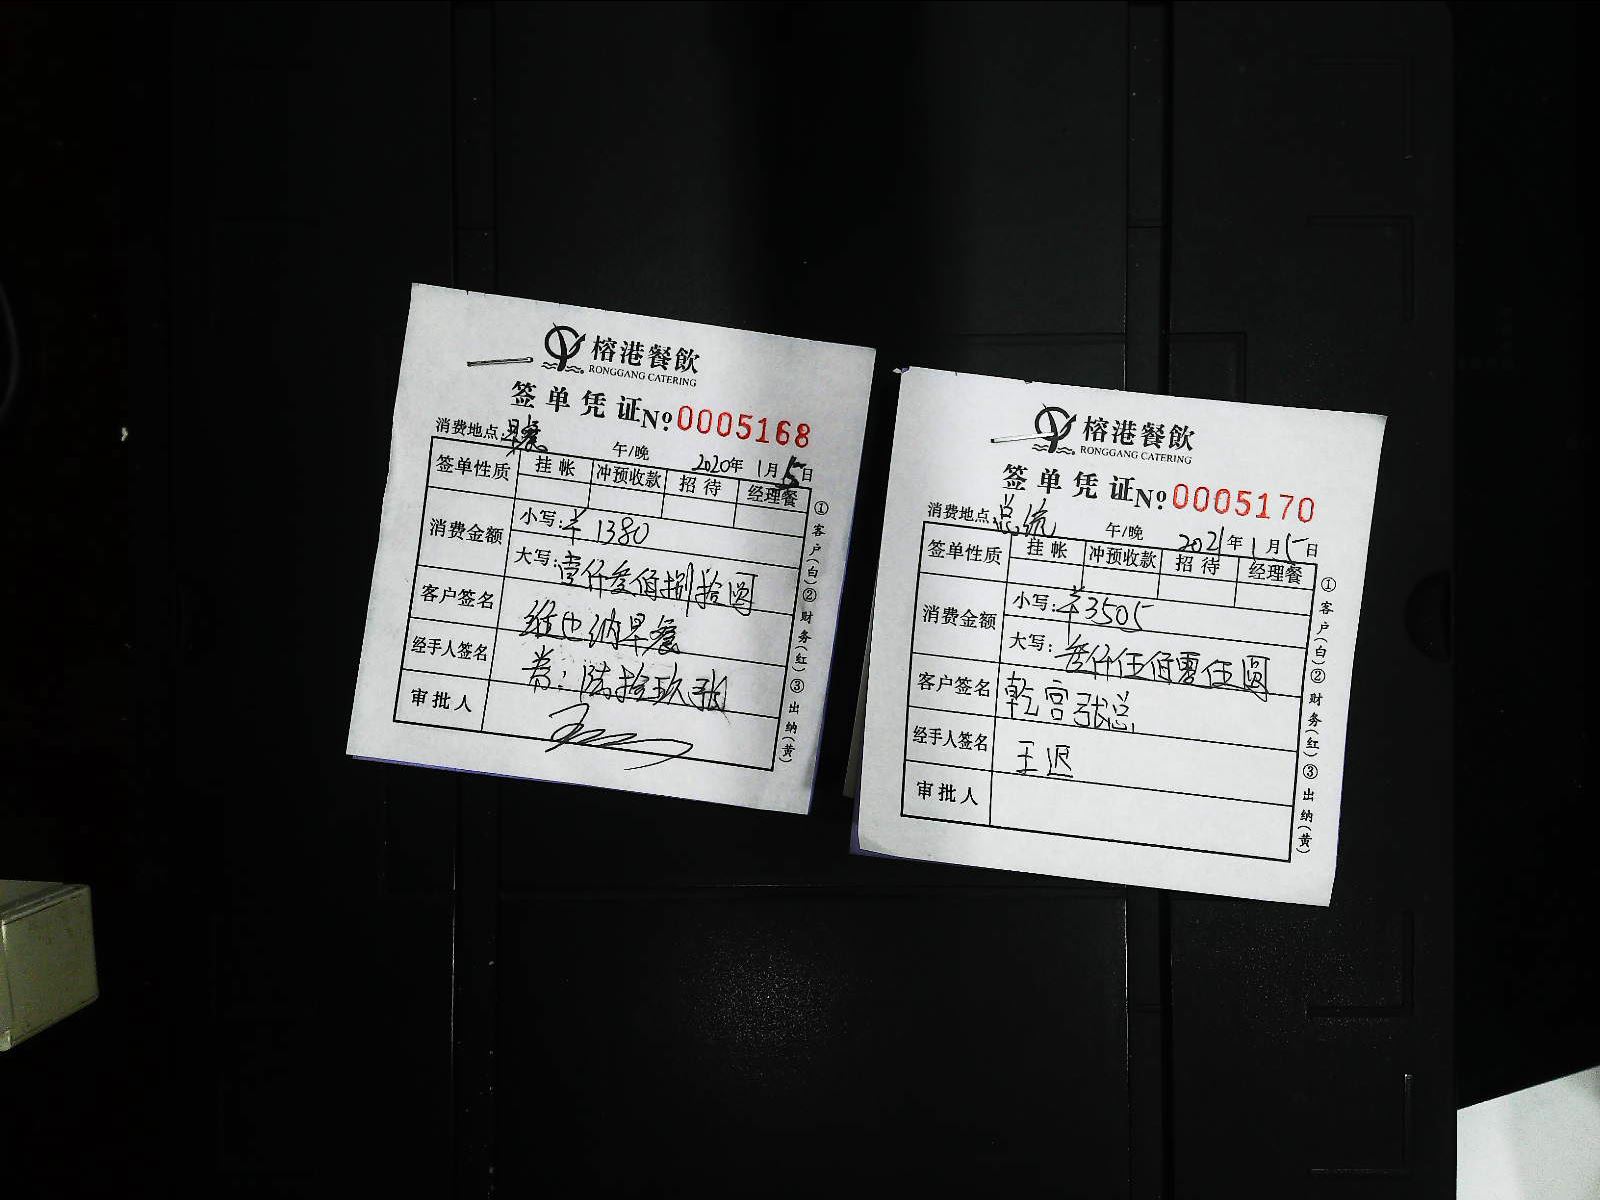 榕港餐飲
RONGGANG CATERING
签单凭证 No. 0005168
消费地点:早餐 午/晚 2020年1月5日
签单性质 挂帐 冲预收款 招待 经理餐
消费金额 小写:¥1380
大写:壹仟叁佰捌拾圆
客户签名 维也纳早餐
经手人签名 券:陆拾玖张
审批人
①客户(白)②财务(红)③出纳(黄)
榕港餐飲
RONGGANG CATERING
签单凭证 No. 0005170
消费地点:总统 午/晚 2021年1月5日
签单性质 挂帐 冲预收款 招待 经理餐
消费金额 小写:¥3505
大写:叁仟伍佰零伍圆
客户签名 乾宫张总
经手人签名 王
审批人
①客户(白)②财务(红)③出纳(黄)